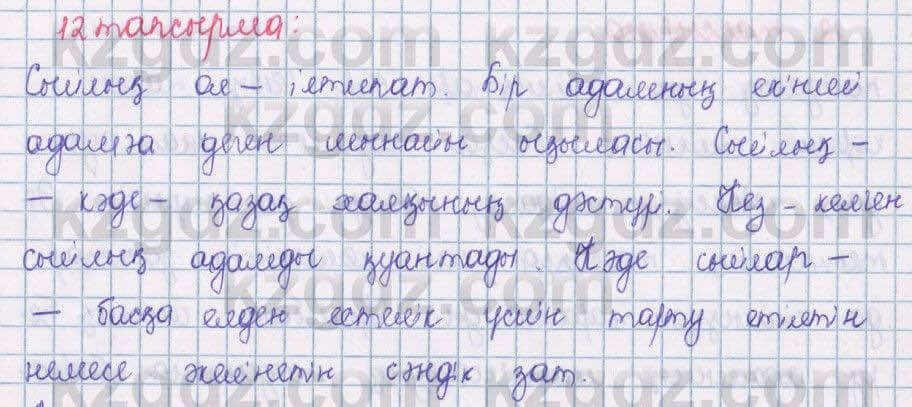 12 тапсырма:
Сыйлық ол – ілтипат. Бір адамның екінші
адамға деген шынайы ықыласы. Сыйлық –
– кәде – қазақ халқының дәстүрі. Кез – келген
сыйлық адамды қуантады. Кәде сыйлар –
– басқа елден естелік үшін тарту етілетін
немесе жөінетін сәндік зат.